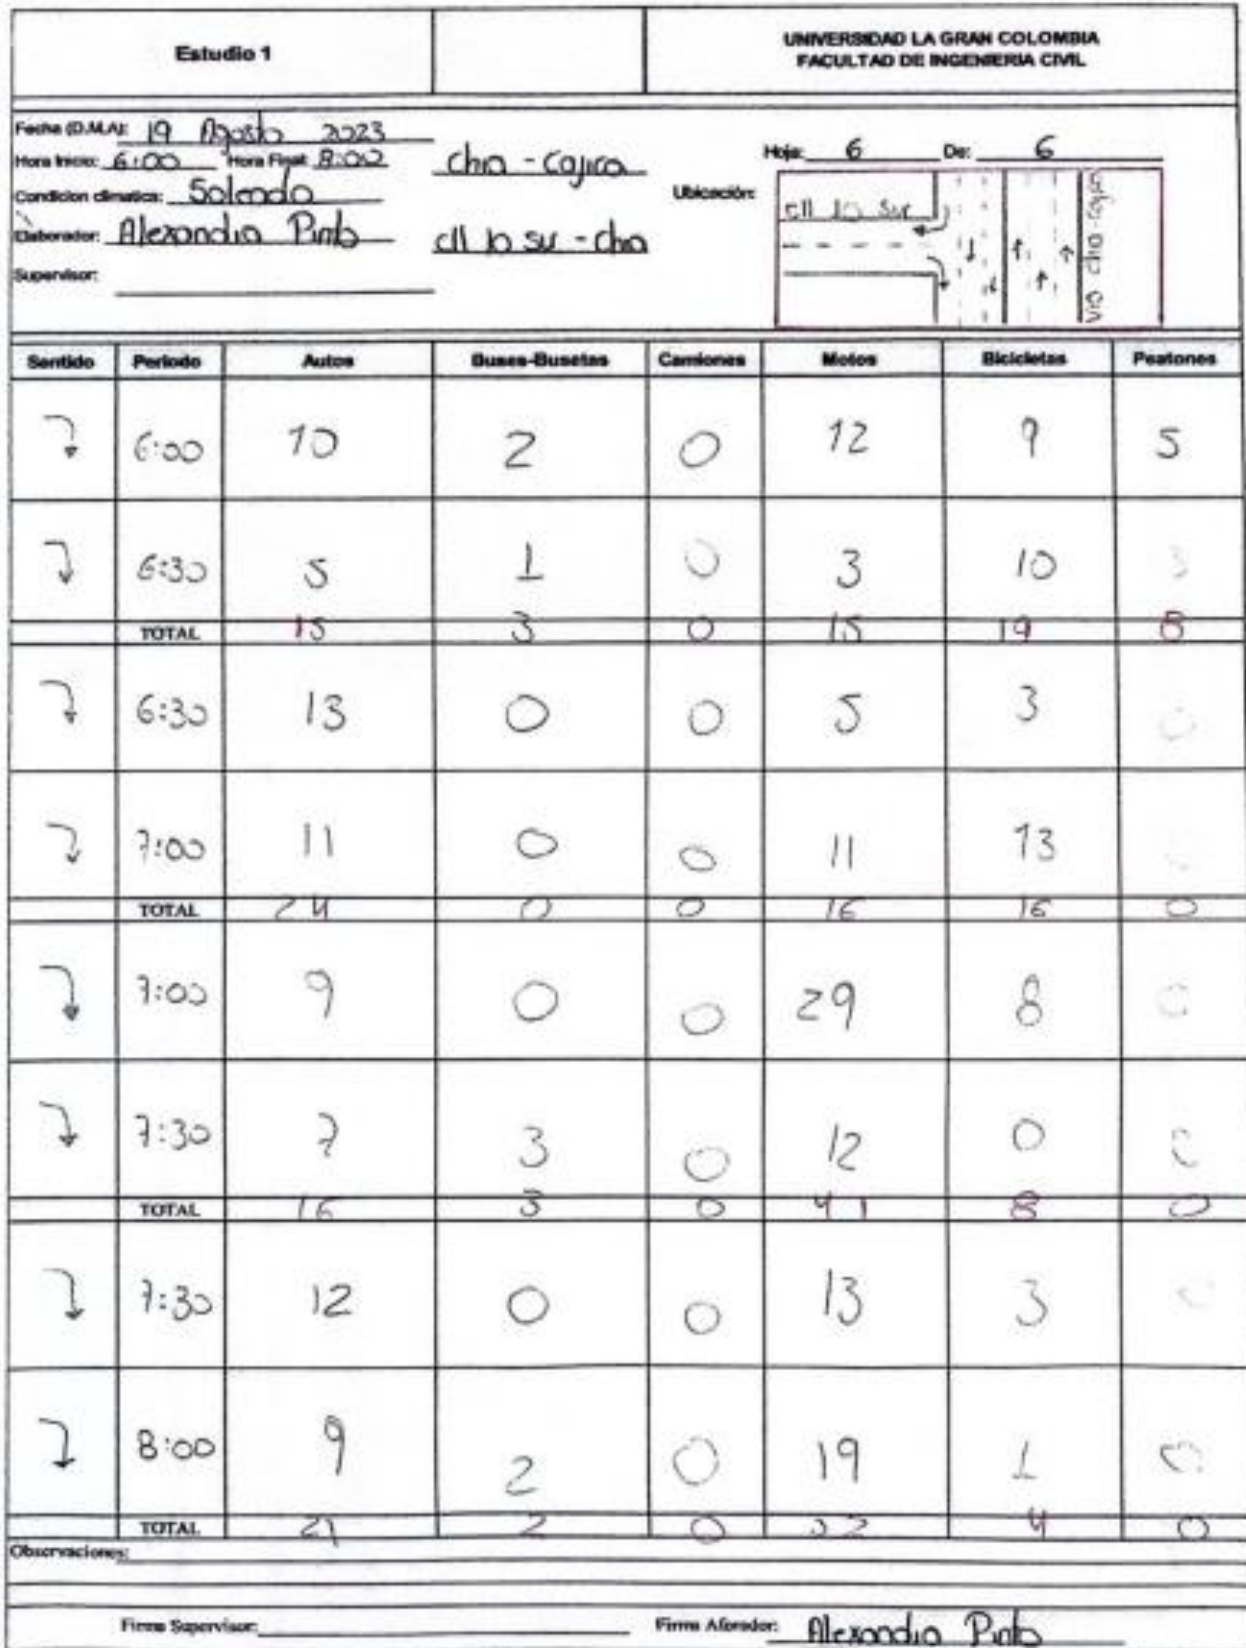 Estudio 1
UNIVERSIDAD LA GRAN COLOMBIA
FACULTAD DE INGENIERIA CIVIL
Fecha (D.M.A): 19 Agosto 2023
Hora Inicio: 6:00 Hora Final: 8:00
Chia - Cajica
Condicion climatica: Soleado
Elaborador: Alexandra Pinto
cll 10 sur - chia
Supervisor:
Hoja: 6 De: 6
Ubicación:
cll 10 sur
via chia - cajica
Sentido Periodo Autos Buses-Busetas Camiones Motos Bicicletas Peatones
6:00 10 2 0 12 9 5
6:30 5 1 0 3 10
TOTAL 15 3 0 15 19
6:30 13 0 0 5 3 0
7:00 11 0 0 11 13
TOTAL 24 0 0 16 16 0
7:00 9 0 0 29 8 0
7:30 7 3 0 12 0 0
TOTAL 16 3 0 41 8 0
7:30 12 0 0 13 3 0
8:00 9 2 0 19 1 0
TOTAL 21 2 0 32 4 0
Observaciones:
Firma Supervisor: Firma Aforador: Alexandra Pinto